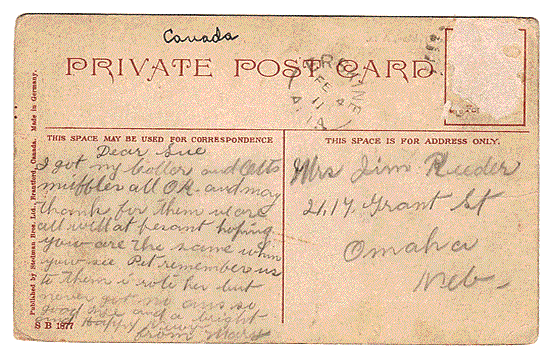 Canada
PRIVATE POST CARD
FE
11
THIS SPACE MAY BE USED FOR CORRESPONDENCE
THIS SPACE IS FOR ADDRESS ONLY.
Dear Sue
I got my coller and
muffler all O.K. and may
thank for them we are
all well at pesant hoping
you are the same when
you see Pet remember us
to them wrote her but
never got no ans so
good bye and a bright
and Happy
from Mary
Mrs Jim Reeder
2417 Grant St
Omaha
Neb
Published by Stedman Bros. Ltd., Brantford, Canada. Made in Germany.
S B 1877